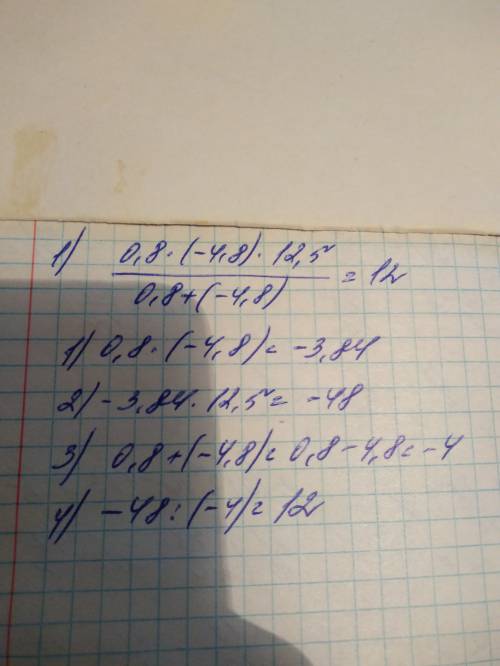 1) 0,8 · (-4,8) · 12,5 / 0,8 + (-4,8) = 12
1) 0,8 · (-4,8) = -3,84
2) -3,84 · 12,5 = -48
3) 0,8 + (-4,8) = 0,8 - 4,8 = -4
4) -48 : (-4) = 12